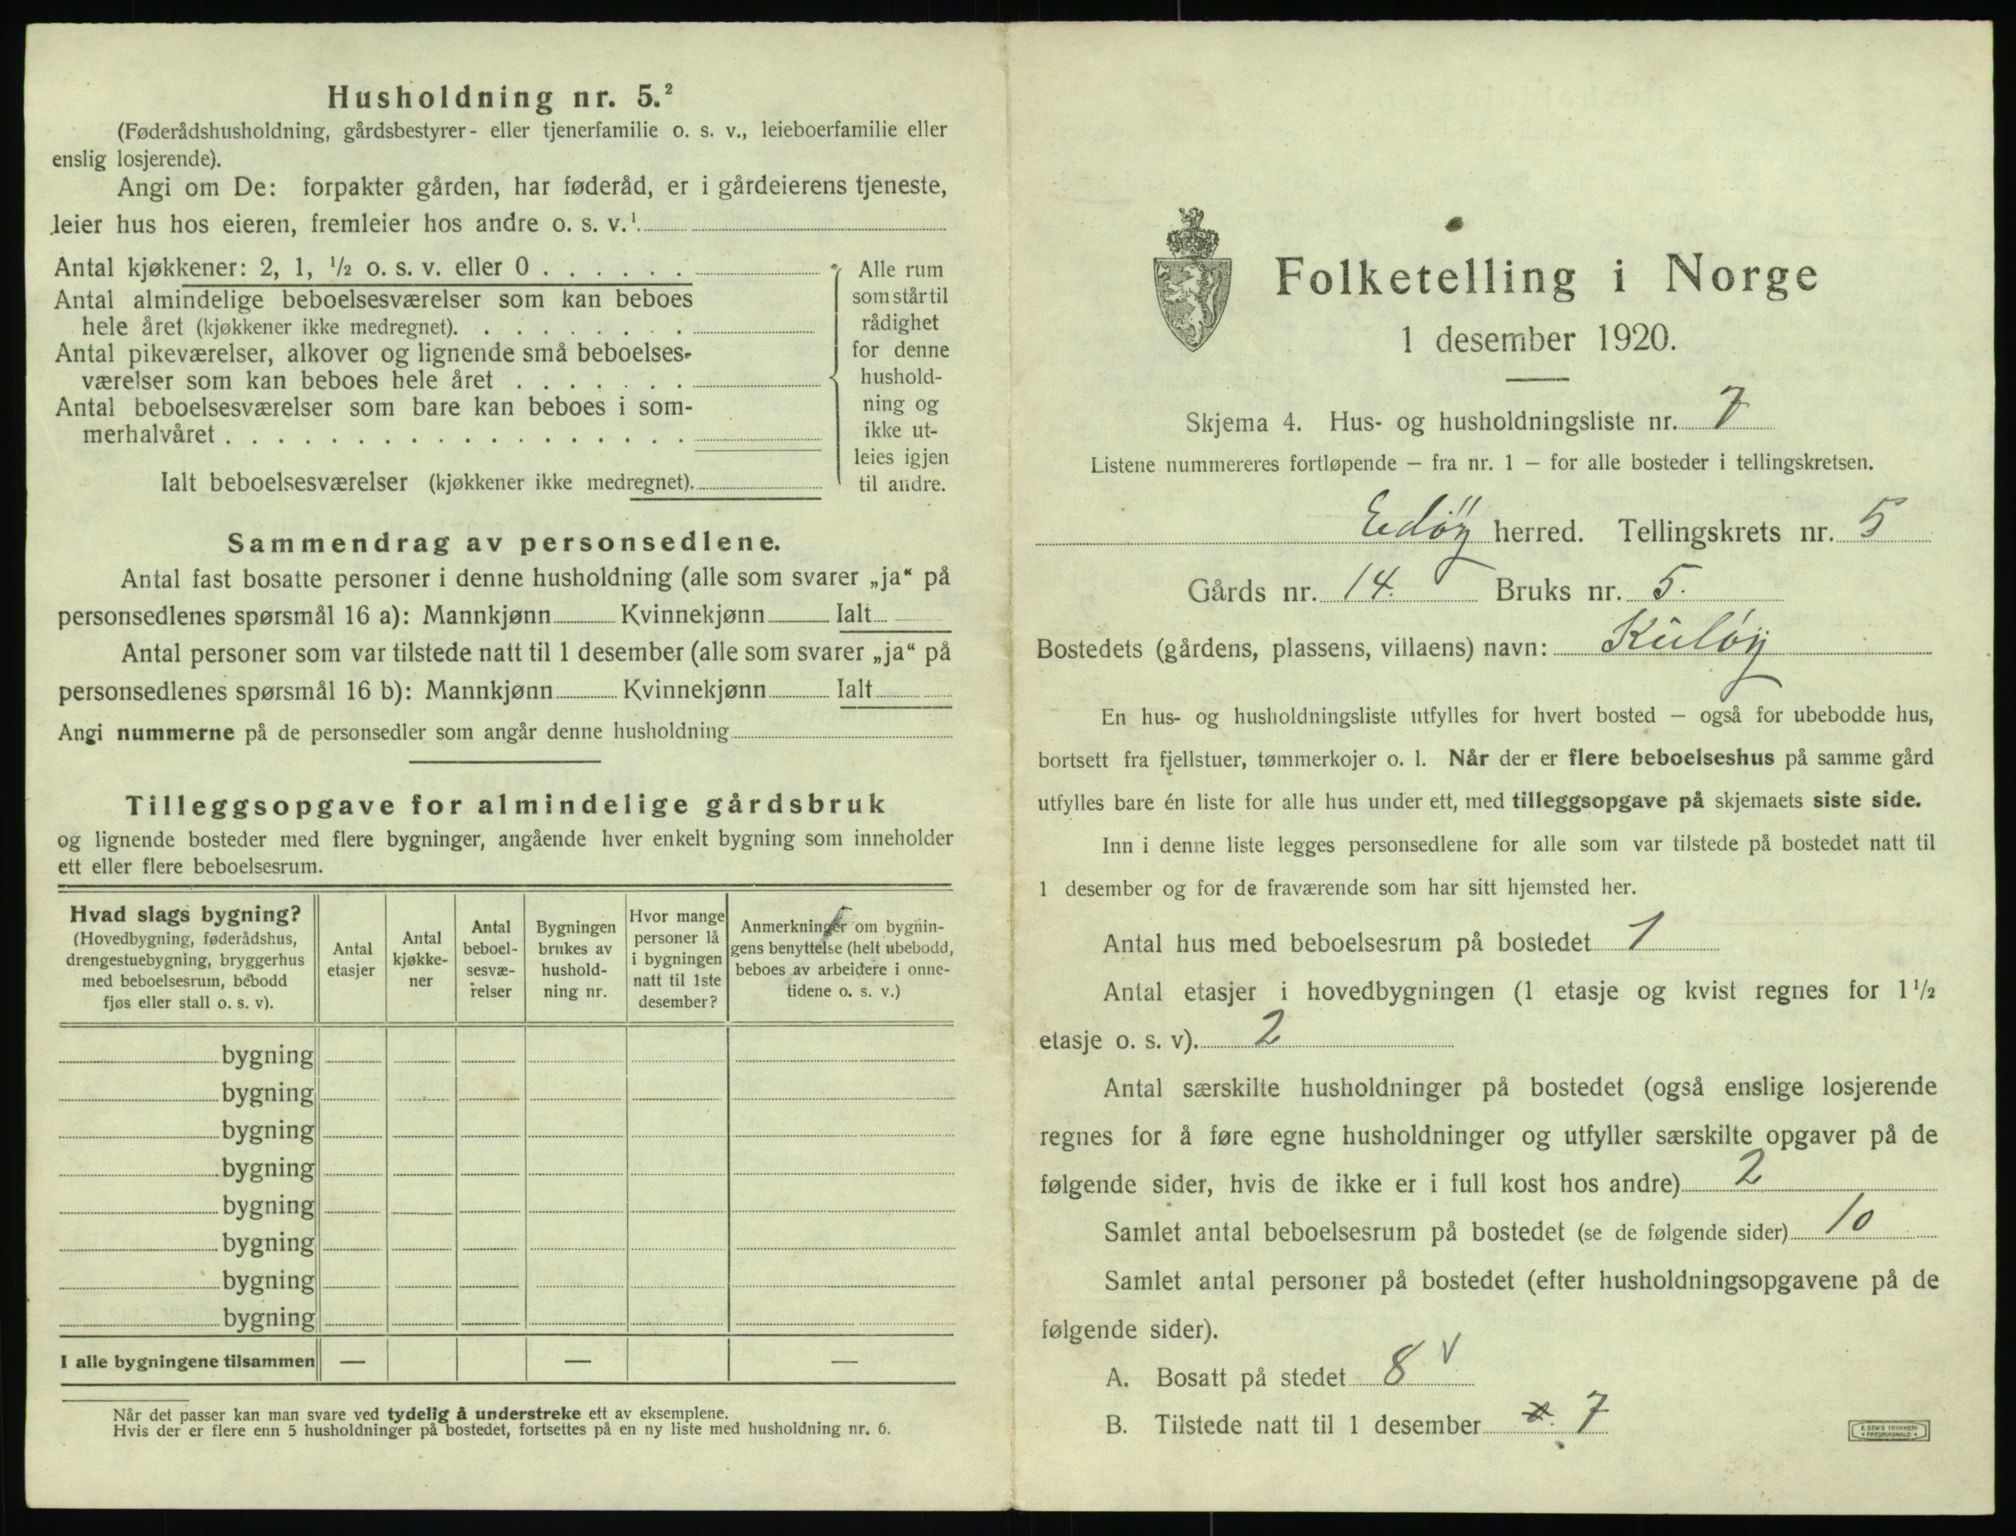 Husholdning nr. 5.²
(Føderådshusholdning, gårdsbestyrer- eller tjenerfamilie o. s. v., leieboerfamilie eller
enslig losjerende).
Angi om De: forpakter gården, har føderåd, er i gårdeierens tjeneste,
leier hus hos eieren, fremleier hos andre o. s. v.¹
Antal kjøkkener: 2, 1, ½ o. s. v. eller 0 . . . . . .
Antal almindelige beboelsesværelser som kan beboes
hele året (kjøkkener ikke medregnet). . . . . . . . .
Antal pikeværelser, alkover og lignende små beboelses-
værelser som kan beboes hele året . . . . . . .
Antal beboelsesværelser som bare kan beboes i som-
merhalvåret . . . . . . . . . . . . . . . . . .
Ialt beboelsesværelser (kjøkkener ikke medregnet).
Alle rum
som står til
rådighet
for denne
hushold-
ning og
ikke ut-
leies igjen
til andre.
Sammendrag av personsedlene.
Antal fast bosatte personer i denne husholdning (alle som svarer „ja“ på
personsedlenes spørsmål 16 a): Mannkjønn Kvinnekjønn Ialt
Antal personer som var tilstede natt til 1 desember (alle som svarer „ja“ på
personsedlenes spørsmål 16 b): Mannkjønn Kvinnekjønn Ialt
Angi nummerne på de personsedler som angår denne husholdning
Tilleggsopgave for almindelige gårdsbruk
og lignende bosteder med flere bygninger, angående hver enkelt bygning som inneholder
ett eller flere beboelsesrum.
Hvad slags bygning?
(Hovedbygning, føderådshus,
drengestuebygning, bryggerhus
med beboelsesrum, bebodd
fjøs eller stall o. s. v).
Antal
etasjer
Antal
kjøkke-
ner
Antal
beboel-
sesvæ-
relser
Bygningen
brukes av
hushold-
ning nr.
Hvor mange
personer lå
i bygningen
natt til 1ste
desember?
Anmerkninger om bygnin-
gens benyttelse (helt ubebodd,
beboes av arbeidere i onne-
tidene o. s. v.)
bygning
bygning
bygning
bygning
bygning
bygning
bygning
bygning
I alle bygningene tilsammen — — —
Når det passer kan man svare ved tydelig å understreke ett av eksemplene.
Hvis der er flere enn 5 husholdninger på bostedet, fortsettes på en ny liste med husholdning nr. 6.
Folketelling i Norge
1 desember 1920.
Skjema 4. Hus- og husholdningsliste nr. 7
Listene nummereres fortløpende – fra nr. 1 – for alle bosteder i tellingskretsen.
Edøy herred. Tellingskrets nr. 5
Gårds nr. 14. Bruks nr. 5.
Bostedets (gårdens, plassens, villaens) navn: Kuløy
En hus- og husholdningsliste utfylles for hvert bosted – også for ubebodde hus,
bortsett fra fjellstuer, tømmerkojer o. l. Når der er flere beboelseshus på samme gård
utfylles bare én liste for alle hus under ett, med tilleggsopgave på skjemaets siste side.
Inn i denne liste legges personsedlene for alle som var tilstede på bostedet natt til
1 desember og for de fraværende som har sitt hjemsted her.
Antal hus med beboelsesrum på bostedet 1
Antal etasjer i hovedbygningen (1 etasje og kvist regnes for 1½
etasje o. s. v). 2
Antal særskilte husholdninger på bostedet (også enslige losjerende
regnes for å føre egne husholdninger og utfyller særskilte opgaver på de
følgende sider, hvis de ikke er i full kost hos andre) 2
Samlet antal beboelsesrum på bostedet (se de følgende sider) 10
Samlet antal personer på bostedet (efter husholdningsopgavene på de
følgende sider).
A. Bosatt på stedet 8 v
B. Tilstede natt til 1 desember 7